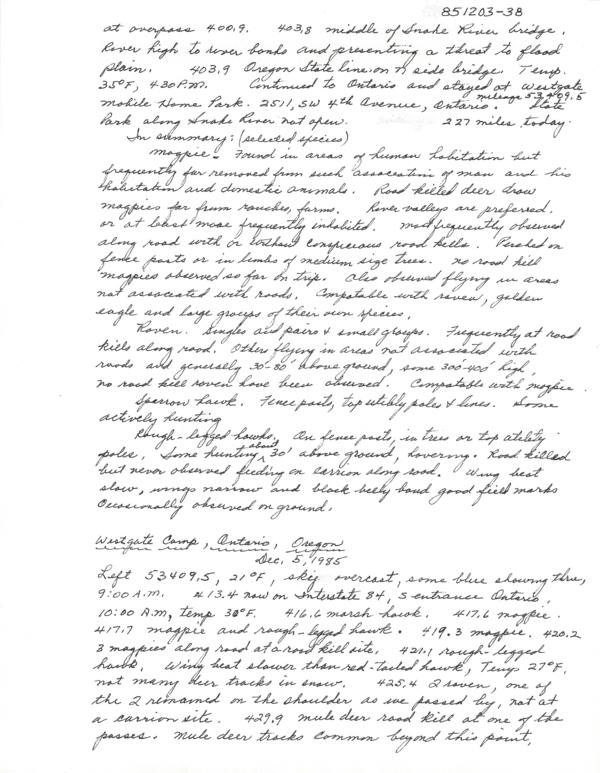 851203-38
at overpass 400.9. 403.8 middle of Snake River bridge.
River high to river banks and presenting a threat to flood
plain. 403.9 Oregon State line on N side bridge. Temp.
35°F, 430 P.M. Continued to Ontario and stayed at Westgate
mileage 53409.5
Mobile Home Park. 2511, SW 4th Avenue, Ontario. State
Park along Snake River not open. 227 miles today.
In summary: (selected species)
Magpie - Found in areas of human habitation but
frequently far removed from such association of man and his
habitation and domestic animals. Road killed deer draw
magpies far from ranches, farms. River valleys are preferred.
or at least more frequently inhabited. Most frequently observed
along road with or without conspicuous road kills. Perched on
fence posts or in limbs of medium size trees. No road kill
magpies observed so far on trip. Also observed flying in areas
not associated with roads. Compatable with raven, golden
eagle and large groups of their own species.
Raven. Singles and pairs & small groups. Frequently at road
kills along road. Others flying in areas not associated with
roads and generally 30'-80' above ground, some 300-400' high,
no road kill raven have been observed. Compatable with magpie.
Sparrow hawk. Fence posts, top utibly poles & lines. Some
actively hunting
Rough-legged hawks. On fence posts, in trees or top utility
poles. Some hunting about 30' above ground, hovering. Road killed
but never observed feeding on carrion along road. Wing beat
slow, wings narrow and black belly band good field marks
Occasionally observed on ground.
Westgate Camp, Ontario, Oregon
Dec. 5, 1985
Left 53409.5, 21°F, sky overcast, some blue showing thru,
9:00 A.M. 413.4 now on Interstate 84, S entrance Ontario,
10:00 A.M, temp 30°F. 416.6 marsh hawk. 417.6 magpie.
417.7 magpie and rough-legged hawk. 419.3 magpie. 420.2
3 magpies along road at a road kill site. 421.1 rough-legged
hawk. Wing beat slower than red-tailed hawk, Temp 27°F.
not many deer tracks in snow. 425.4 2 raven, one of
the 2 remained on the shoulder as we passed by, not at
a carrion site. 429.9 mule deer road kill at one of the
passes. Mule deer tracks common beyond this point,